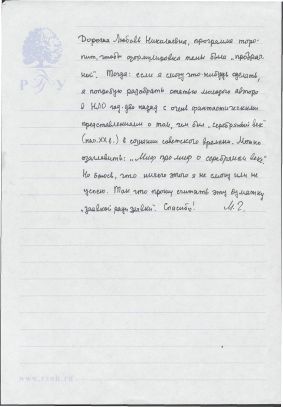 РГГУ
Дорогая Любовь Николаевна, программа торо-
пит, чтобы формулировка темы была "прозрач-
ной". Тогда: если я смогу что-нибудь сделать,
я попробую разобрать статью молодого автора
в НЛО год-два назад с очень фантастическими
представлениями о том, чем был "серебряный век"
(нач. ХХ в.) в сознании советского времени. Можно
озаглавить: "Миф про миф о серебряном веке".
Но боюсь, что ничего этого я не смогу или не
успею. Так что прошу считать эту бумажку
"заявкой ради заявки". Спасибо! М. Г.
www.rsuh.ru